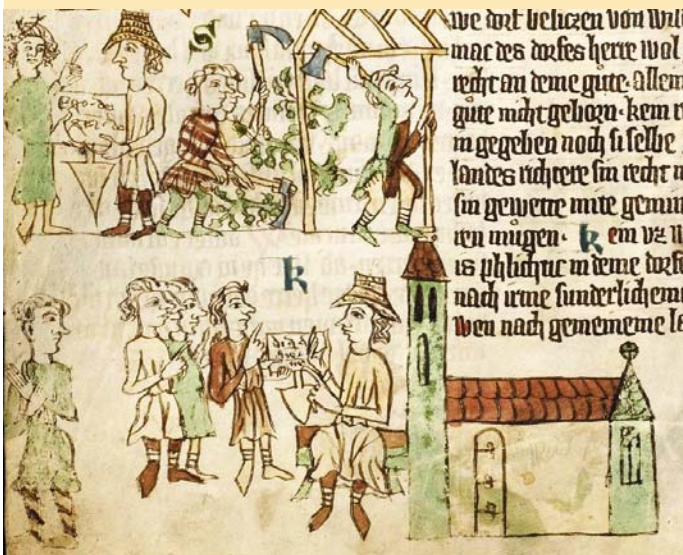 we dorf besiczen von wil
mac des dorfes herre wol
recht an deme gute. allein
gute nicht geborn. kein
in gegeben noch si selbe
landes richtere sin recht
sin gewette mite
ren mugen. kein vz w
is phlichtic in deme dorfe
nach irme sunderlicheme
wen nach gemeineme la
Ego dei
k